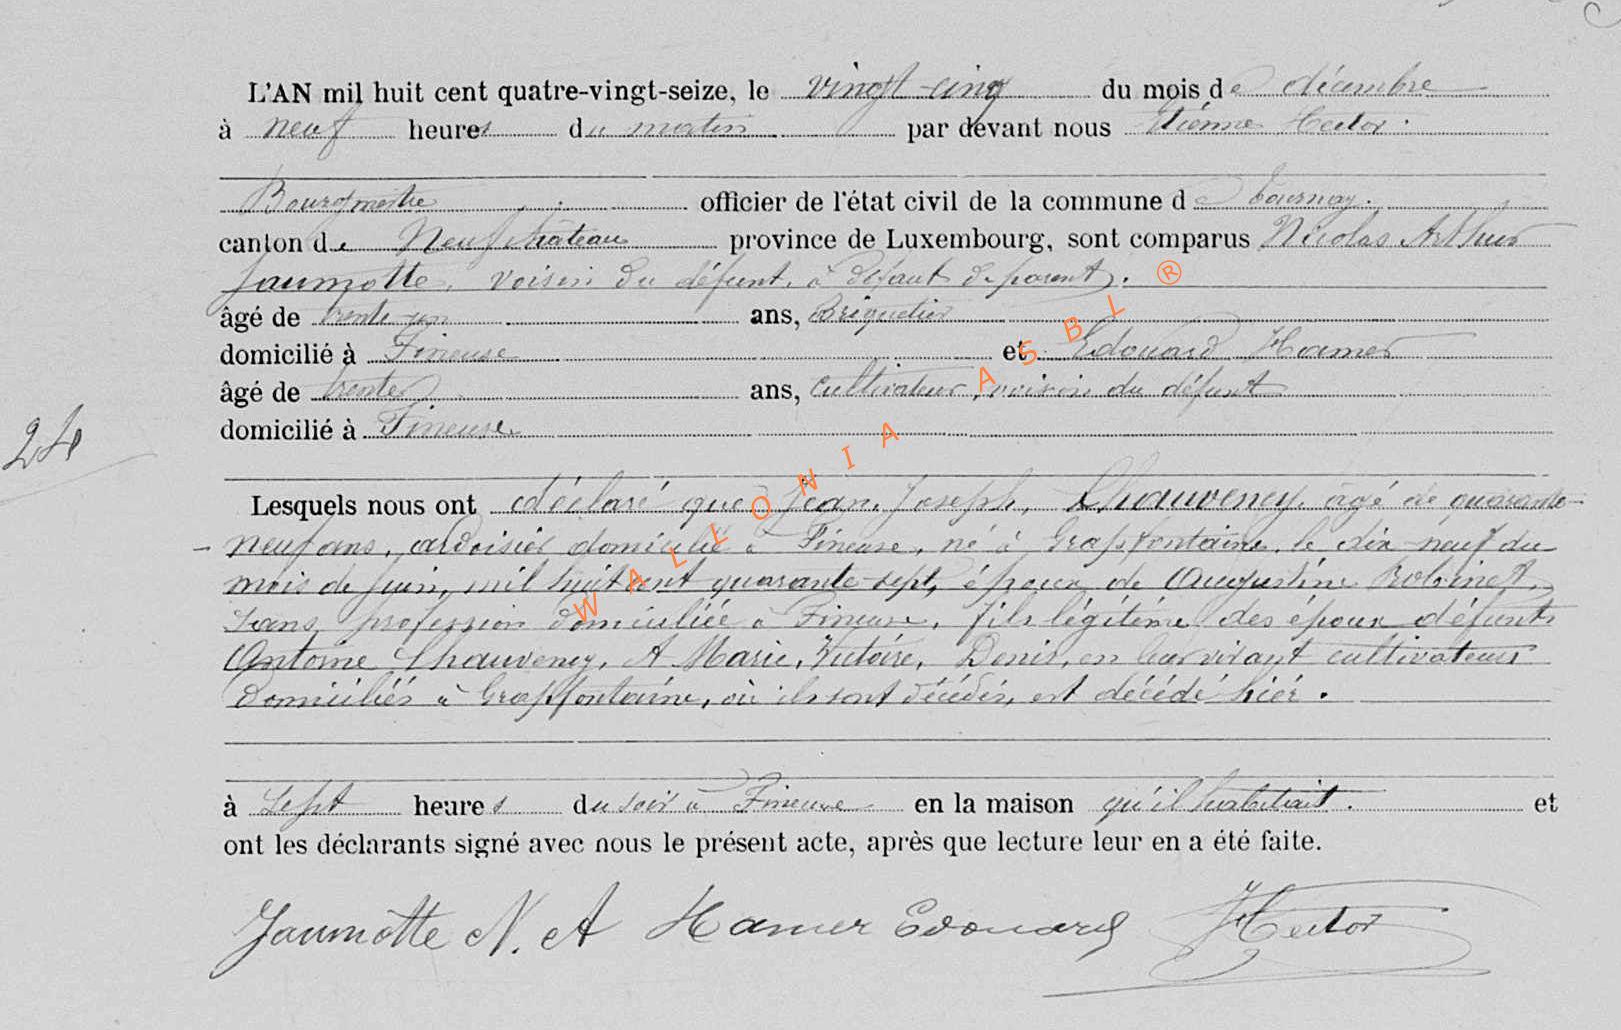 L'AN mil huit cent quatre-vingt-seize, le vingt-cinq du mois de décembre
à neuf heures du matin par devant nous Etienne Hector.
Bourgmestre officier de l'état civil de la commune de Tournay.
canton de Neufchâteau province de Luxembourg, sont comparus Nicolas Arthur
Jaumotte, voisin du défunt, à défaut de parent.
âgé de trente-un ans, Briquetier
domicilié à Fineuse et Edouard Hamer
âgé de trente ans, cultivateur, voisin du défunt
domicilié à Fineuse
24
Lesquels nous ont déclaré que Jean, Joseph, Chauveney, âgé de quarante-
-neuf ans, ardoisier domicilié à Fineuse, né à Grapfontaine, le dix-neuf du
mois de juin, mil huit cent quarante-sept, époux de Augustine Robinet,
sans profession domiciliée à Fineuse, fils légitime des époux défunts
Antoine Chauveney, et Marie, Victoire, Denis, en leur vivant cultivateurs
domiciliés à Grapfontaine, où ils sont décédés, est décédé hier.
à sept heures du soir à Fineuse en la maison qu'il habitait. et
ont les déclarants signé avec nous le présent acte, après que lecture leur en a été faite.
Jaumotte N. A Hamer Edouard Hector
WALLONIA ASBL ®